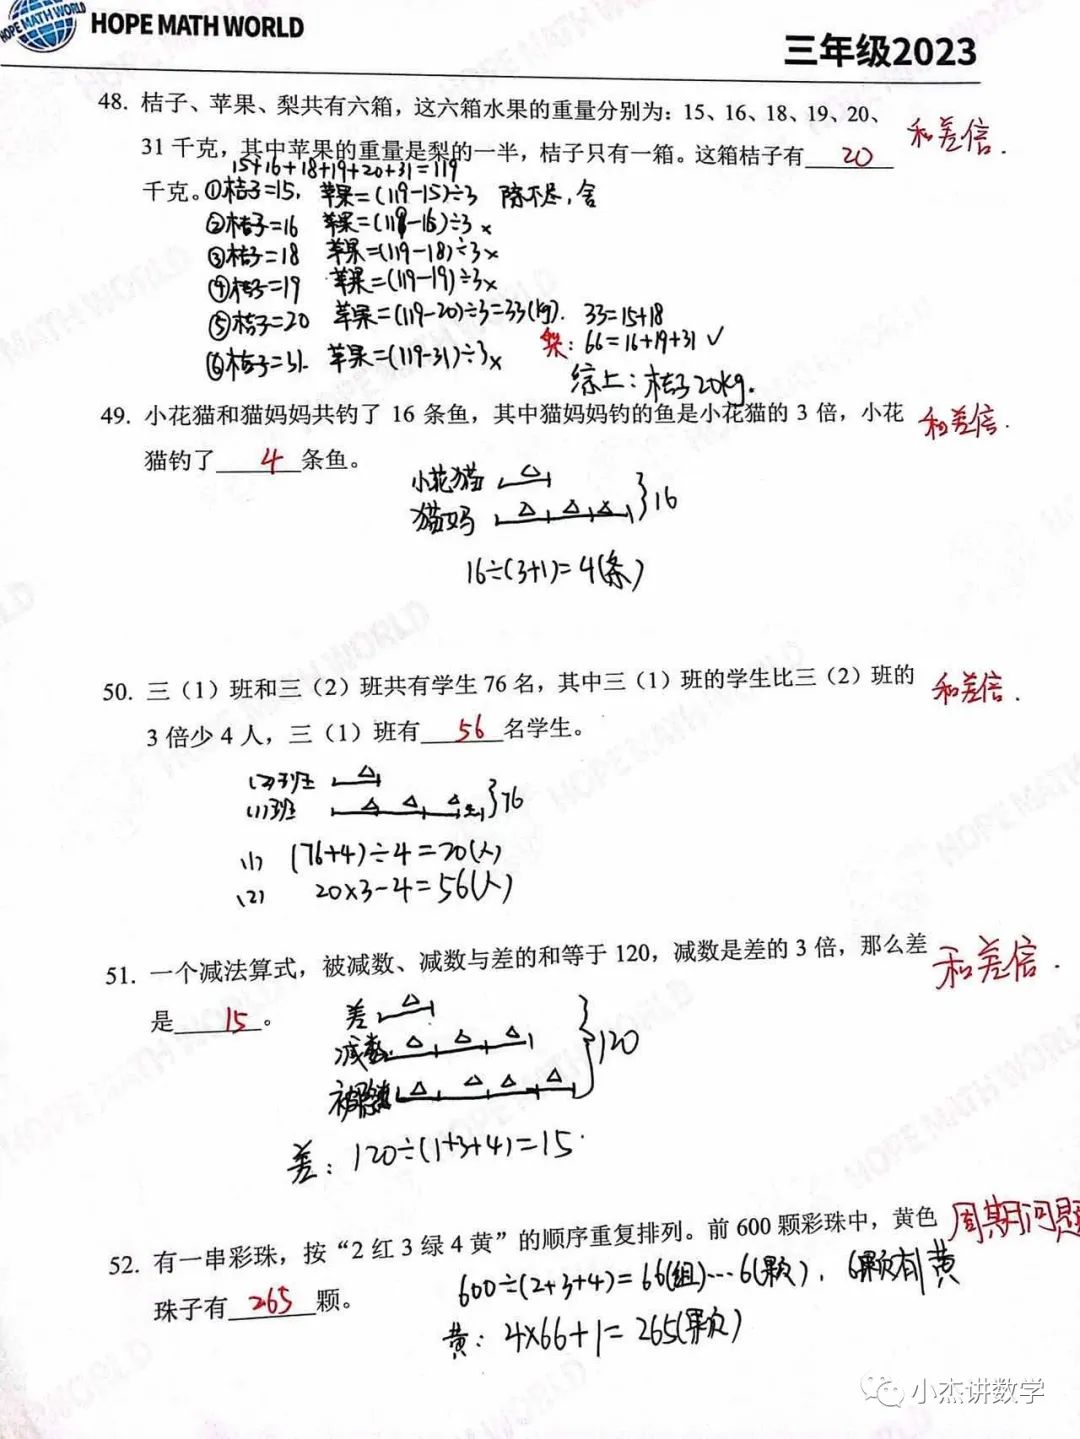 HOPE MATH WORLD
三年级2023
48. 桔子、苹果、梨共有六箱，这六箱水果的重量分别为：15、16、18、19、20、
和差倍.
31 千克，其中苹果的重量是梨的一半，桔子只有一箱。这箱桔子有 20
15+16+18+19+20+31=119
千克。①桔子=15. 苹果=(119-15)÷3 除不尽，舍
②桔子=16 苹果=(119-16)÷3 ×
③桔子=18 苹果=(119-18)÷3×
④桔子=19 苹果=(119-19)÷3×
⑤桔子=20 苹果=(119-20)÷3=33(kg). 33=15+18
梨: 66=16+19+31 ✓
⑥桔子=31. 苹果=(119-31)÷3×
综上：桔子20kg.
49. 小花猫和猫妈妈共钓了 16 条鱼，其中猫妈妈钓的鱼是小花猫的 3 倍，小花
和差倍.
猫钓了 4 条鱼。
小花猫
猫妈
16
16÷(3+1)=4(条)
50. 三（1）班和三（2）班共有学生 76 名，其中三（1）班的学生比三（2）班的
和差倍.
3 倍少 4 人，三（1）班有 56 名学生。
(2)班
(1)班
76
(1) (76+4)÷4=20(人)
(2) 20×3-4=56(人)
51. 一个减法算式，被减数、减数与差的和等于 120，减数是差的 3 倍，那么差
和差倍.
是 15 。
差
减数
120
差：120÷(1+3+4)=15
52. 有一串彩珠，按“2 红 3 绿 4 黄”的顺序重复排列。前 600 颗彩珠中，黄色
周期问题
600÷(2+3+4)=66(组)…6(颗)，6颗有1黄
珠子有 265 颗。
黄：4×66+1=265(颗)
小杰讲数学